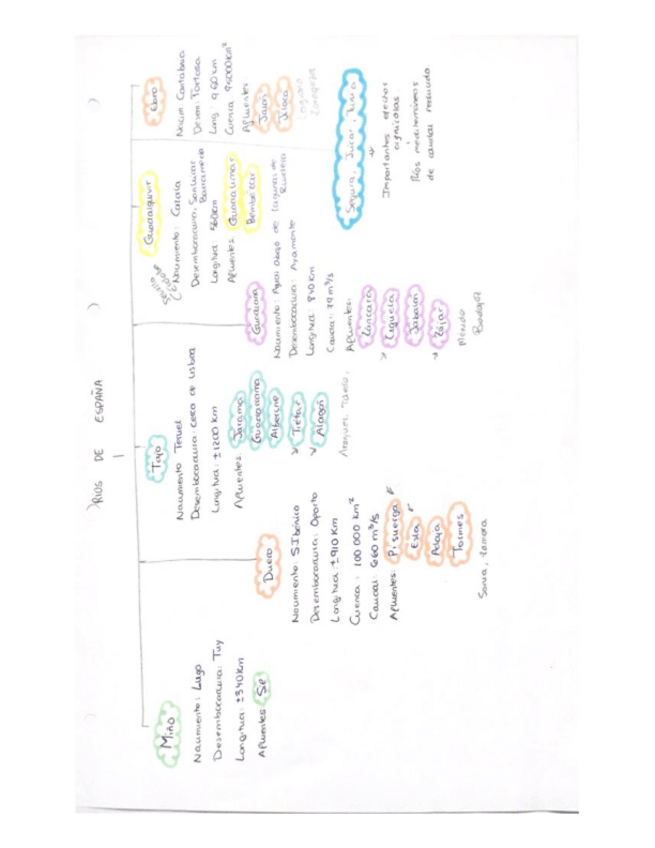 RIOS DE ESPAÑA
Miño
Nacimiento: Lugo
Desembocadura: Tuy
Longitud: ±340Km
Afluentes: Sil
Duero
Nacimiento: S.Ibérico
Desembocadura: Oporto
Longitud: ±910 Km
Cuenca: 100 000 km²
Caudal: 660 m³/s
Afluentes: Pisuerga
Esla
Adaja
Tormes
Soria, Zamora
Tajo
Nacimiento Teruel
Desembocadura: cerca de Lisboa
Longitud: ±1200 Km
Afluentes: Jarama
Guadarrama
Alberche
Tietar
Alagón
Aranjuez, Toledo,
Guadiana
Nacimiento: Aguas abajo de lagunas de Ruidera
Desembocadura: Ayamonte
Longitud: 840 Km
Caudal: 79 m³/s
Afluentes:
Záncara
Cigüela
Jabalón
Zújar
Mérida
Badajoz
Guadalquivir
Nacimiento: Cazorla
Desembocadura: Sanlúcar
Barrameda
Longitud: 560km
Afluentes: Guadalimar
Bembézar
Sevilla
Ebro
Nacim Cantabria
Desem: Tortosa
Long: 960 km
Cuenca 95000km²
Afluentes:
Jalón
Jiloca
Logroño
Zaragoza
Segura, Júcar, Turia
Importantes efectos
agrícolas
Ríos mediterráneos
de caudal reducido